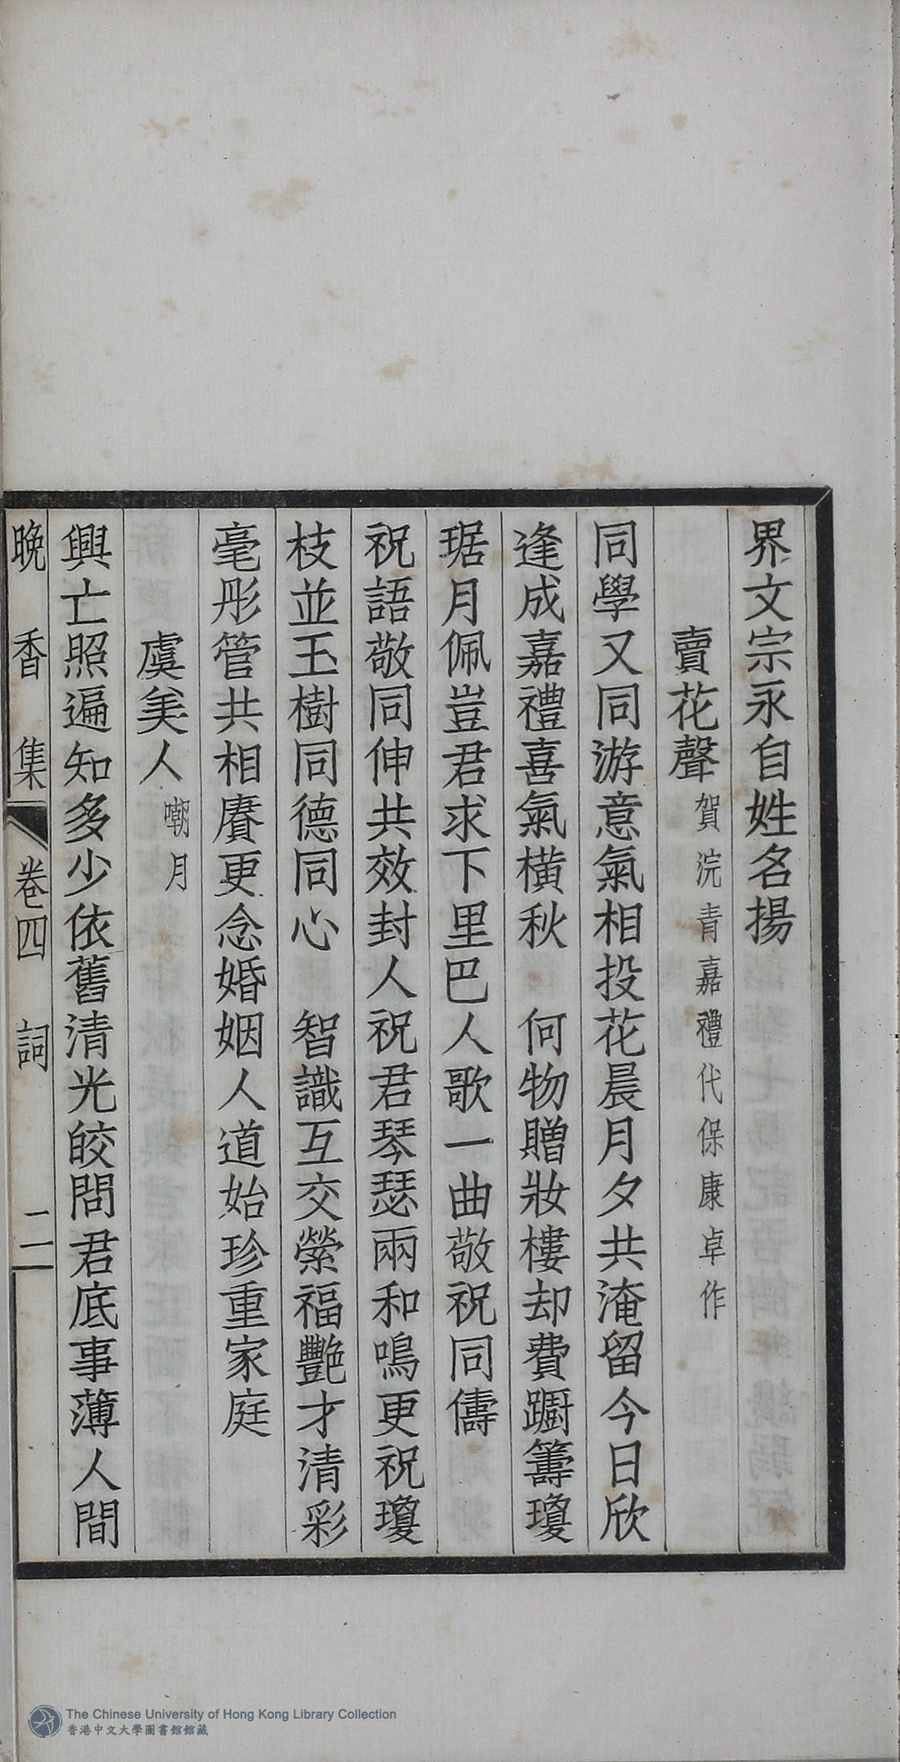 界文宗永自姓名揚
賣花聲 賀浣青嘉禮代保康卓作
同學又同游意氣相投花晨月夕共淹留今日欣
逢成嘉禮喜氣橫秋　何物贈妝樓却費躕籌瓊
琚月佩豈君求下里巴人歌一曲敬祝同儔
祝語敬同伸共效封人祝君琴瑟兩和鳴更祝瓊
枝並玉樹同德同心　智識互交縈福艷才清彩
毫彤管共相賡更念婚姻人道始珍重家庭
虞美人 嘲月
興亡照遍知多少依舊清光皎問君底事薄人間
晚香集 卷四 詞 二
The Chinese University of Hong Kong Library Collection
香港中文大學圖書館館藏